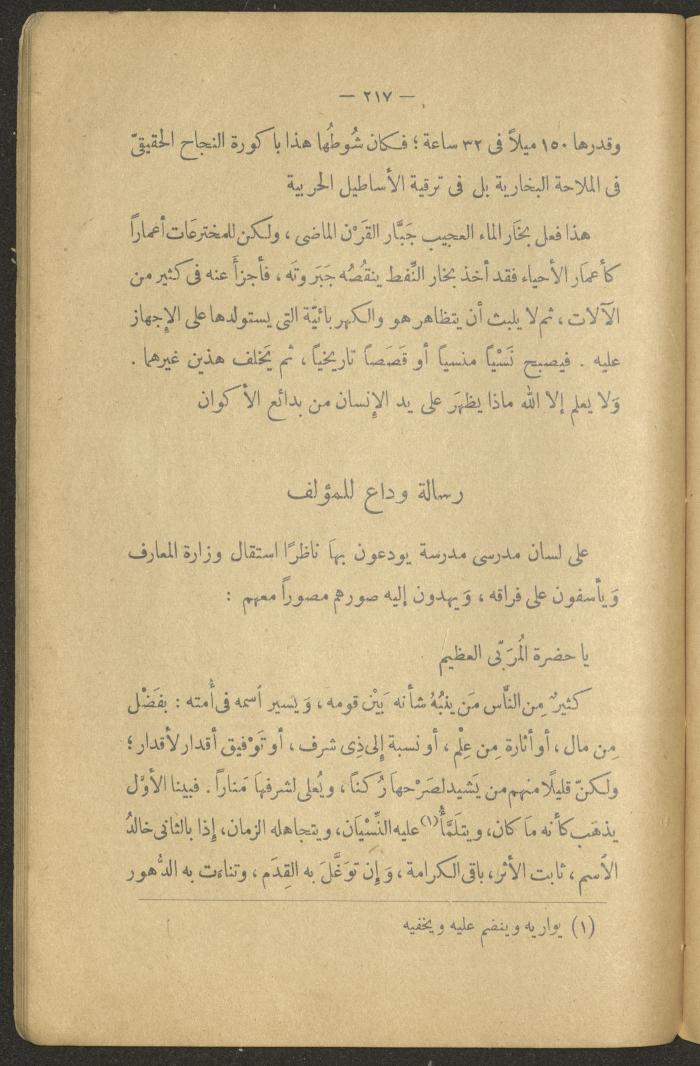 — ٢١٧ —
وقدرها ١٥٠ ميلاً فى ٣٢ ساعة ؛ فكان شُوطُها هذا باكورة النجاح الحقيقىّ
فى الملاحة البخارية بل فى ترقية الأساطيل الحربية
هذا فعل بخَار الماء العجيب جَبَّار القَرْن الماضى ، ولكن للمخترعَات أعماراً
كأعمَار الأحياء فقد أخذ بخار النِّفط ينقُصُه جَبَروتَه ، فأجزأَ عنه فى كثير من
الآلات ، ثم لا يلبث أن يتظاهر هو والكهربائيّة التى يستولدها على الإِجهاز
عليه . فيصبح نَسْيًا منسياً أو قَصَصاً تاريخياً ، ثم يَخلف هذين غيرهما .
وَلا يعلم إلا الله ماذا يظهَر على يد الإِنسان من بدائع الأكوان
رسالة وداع للمؤلف
على لسان مدرسى مدرسة يودعون بهَا ناظرًا استقال وزارة المعارف
وَيأسفون على فراقه ، وَيهدون إليه صورهم مصوراً معهم :
يا حضرة المُرَبّى العظيم
كثيرٌ مِن النَّاس مَن ينبُهُ شأنه بَيْن قومه ، وَيسير اسمه فى أُمته : بفَضْل
مِن مال ، أو أثارة مِن عِلْم ، أو نسبة إلى ذِى شرف ، أو تَوْفيق أقدار لأقدار ؛
ولكنّ قليلًا منهم من يَشيد لصَرْحهَا رُكناً ، ويُعلى لشرفهَا مَناراً . فبينا الأوّل
يذهَب كأنه مَا كان، ويتلَمَّأُ(١) عليه النِّسْيَان، ويتجاهله الزمان، إِذا بالثانى خالدُ
الاسم ، ثابت الأثر، باقى الكرامة ، وَإِن توَغَّلَ به القِدَم ، وتناءت به الدُّهور
(١) يواريه وينضم عليه ويخفيه